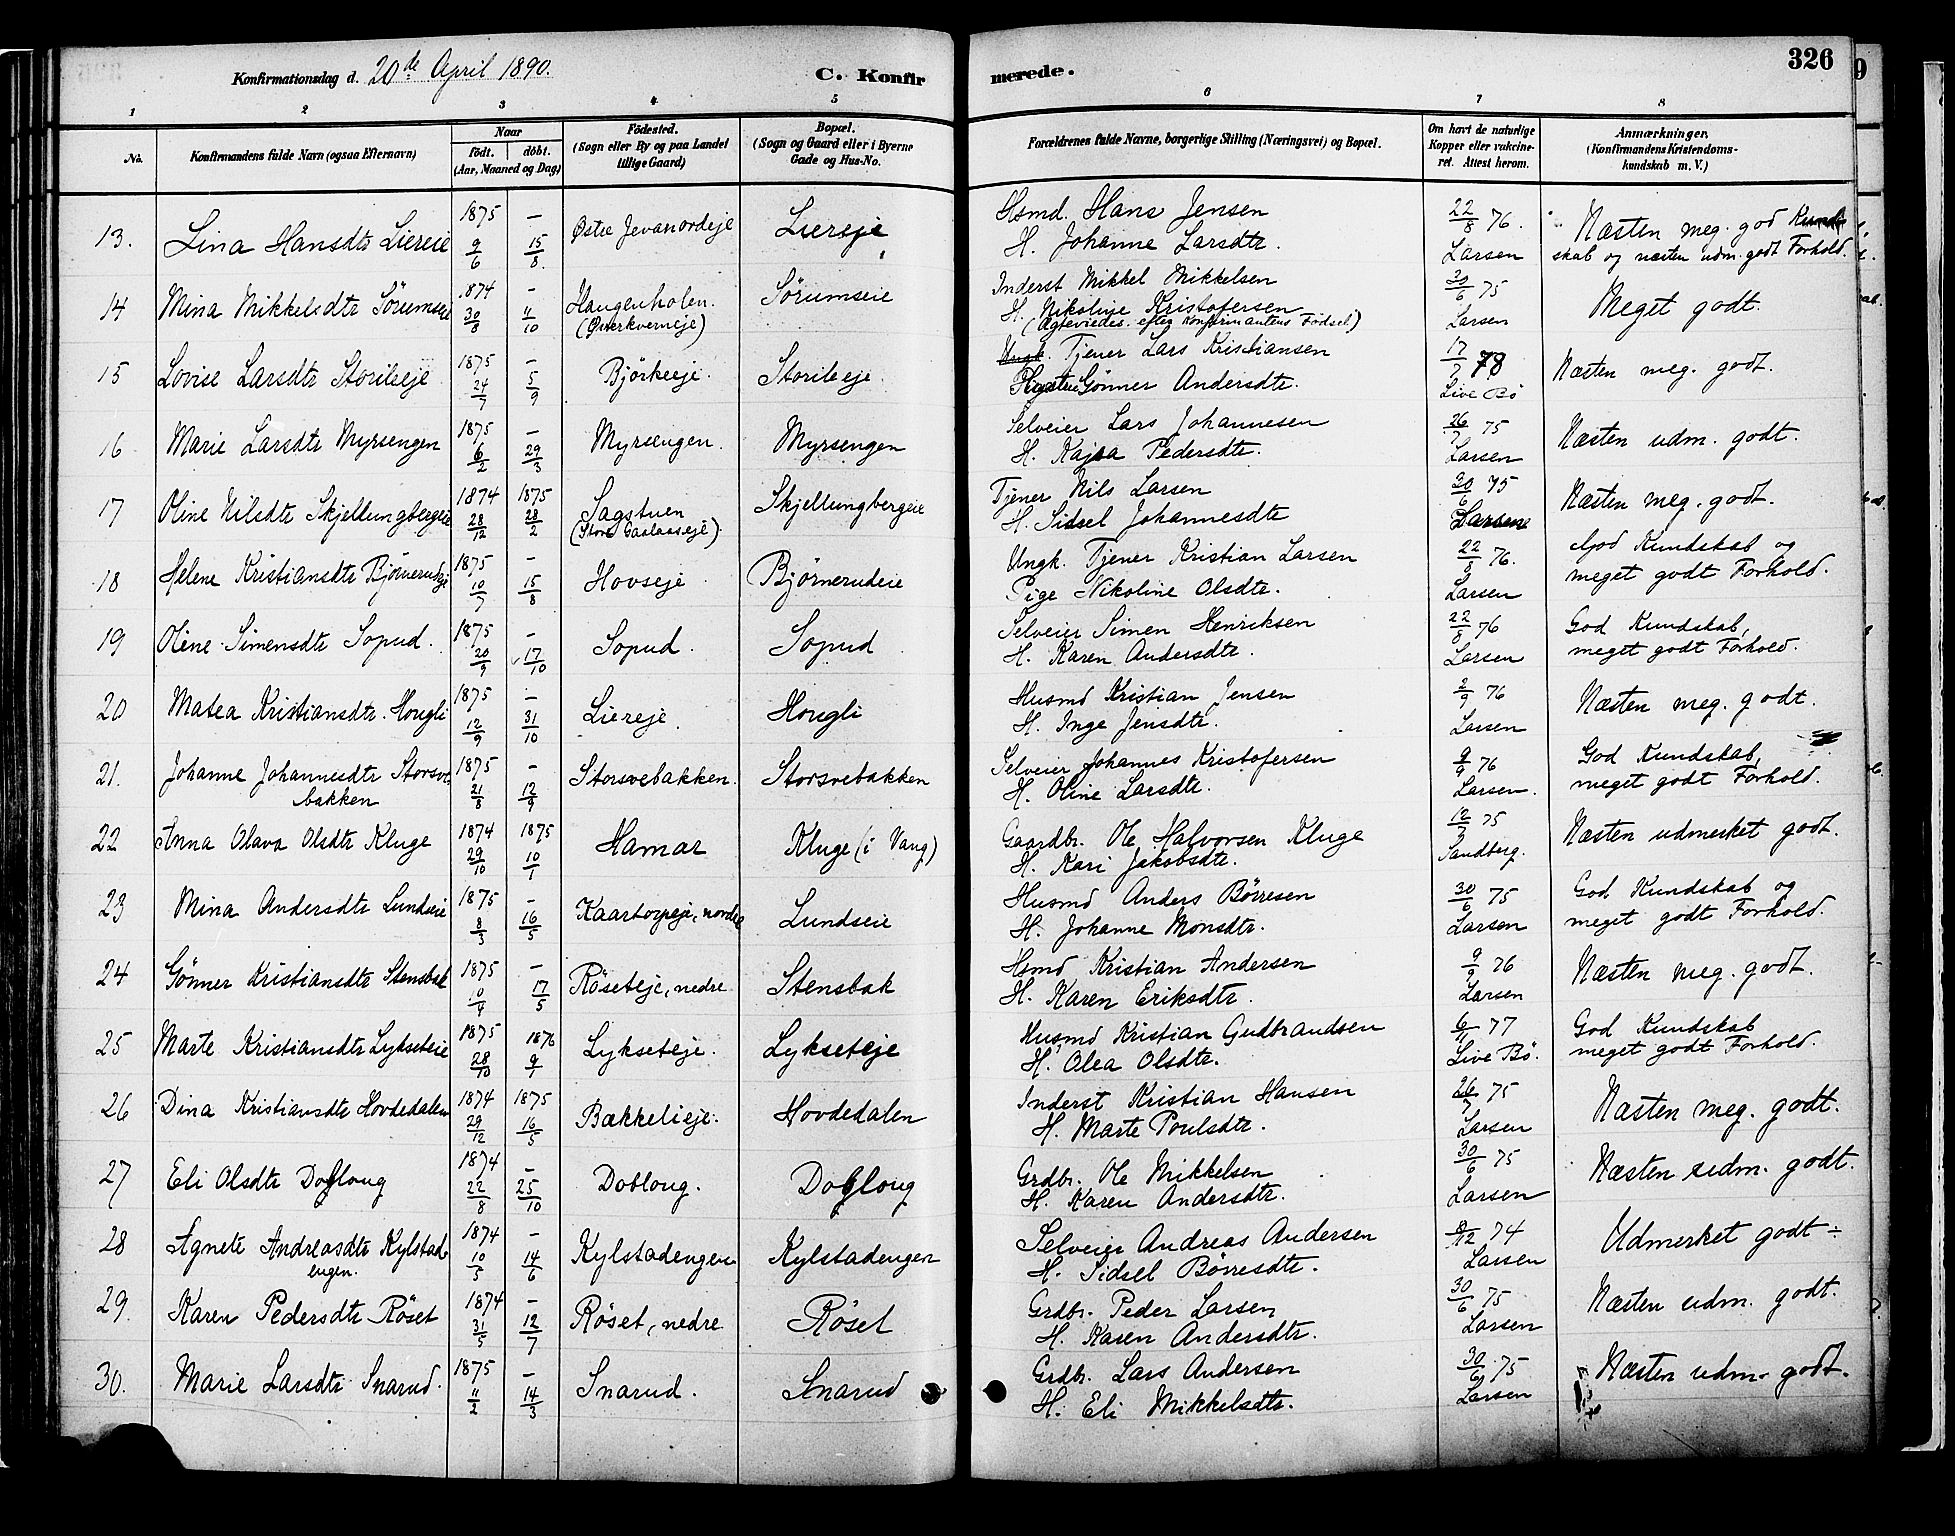 Konfirmationsdag d. 20de April 1890.
C. Konfirmerede.
326
1 2 3 4 5 6 7 8
No.
Konfirmandens fulde Navn (ogsaa Efternavn)
Naar
födt. döbt.
(Aar, Maaned og Dag)
Födested.
(Sogn eller By og paa Landet
tillige Gaard)
Bopæl.
(Sogn og Gaard eller i Byerne
Gade og Hus-No.
Forældrenes fulde Navne, borgerlige Stilling (Næringsvei) og Bopæl.
Om havt de naturlige
Kopper eller vakcine-
ret. Attest herom.
Anmærkninger.
(Konfirmandens Kristendoms-
kundskab m. V.)
13. Lina Hansdtr Liereie 1875 9/6 – 15/8 Østre Jevanordeje Liereje Hsmd. Hans Jensen 22/8 76. Næsten meg. god Kund-
H. Johanne Larsdtr. Larsen skab og næsten udm. godt Forhold.
14 Mina Mikkelsdtr Sörumseie 1874 30/8 – 11/10 Haugenholen. (Øverkverneje) Sörumseie Inderst Mikkel Mikkelsen 30/6 75 Meget godt.
H. Nikoline Kristofersen Larsen
(Ægteviedes efter Konfirmantens Födsel)
15 Lovise Larsdtr Storileeje 1875 24/7 – 5/9 Björkeeje. Storileeje Ungk. Tjener Lars Kristiansen 17/7 78 Næsten meg. godt.
Hustru Gönner Andersdtr. Live Bö
16 Marie Larsdtr Myrsengen 1875 6/2 – 29/3 Myrsengen. Myrsengen Selveier Lars Johannesen 26/7 75 Næsten udm. godt.
H. Kajsa Pedersdtr. Larsen
17 Oline Nilsdtr Skjellungbergeie 1874 28/12 1875 28/2 Sagstuen (Store Gaalaaseje) Skjellungbergeie Tjener Nils Larsen 30/6 75 Næsten meg. godt.
H. Sidsel Johannesdtr Larsen
18 Helene Kristiansdtr Björnerudeje 1875 10/7 – 15/8 Hovseje Björnerudeie Ungk. Tjener Kristian Larsen 22/8 76. God Kundskab og
Pige Nikoline Olsdtr. Larsen meget godt Forhold.
19 Oline Simensdtr Sopud. 1875 20/9 – 17/10 Sopud. Sopud Selveier Simen Henriksen 22/8 76 God Kundskab,
H. Karen Andersdtr. Larsen meget godt Forhold.
20 Matea Kristiansdtr. Hougli 1875 12/9 – 31/10 Liereje. Hougli Husmd Kristian Jensen 2/9 76 Næsten meg. godt.
H. Inge Jensdtr. Larsen
21. Johanne Johannesdtr Storsve- 1875 21/8 – 12/9 Storsvebakken. Storsvebakken Selveier Johannes Kristofersen 9/9 76 God Kundskab,
bakken H. Oline Larsdtr. Larsen. meget godt Forhold.
22 Anna Olava Olsdtr Kluge 1874 29/10 1875 10/1 Hamar Kluge (i Vang) Gaardbr. Ole Halvorsen Kluge 12/7 75 Næsten udmerket godt.
H. Kari Jakobsdtr. Sandberg.
23 Mina Andersdtr Lundseie 1875 8/3 – 16/5 Kaartorpeje, nordre Lundseie Husmd Anders Börresen 30/6 75 God Kundskab og
H. Johanne Monsdtr. Larsen meget godt Forhold.
24 Gönner Kristiansdtr Stensbak 1875 10/4 – 17/5 Röseteje, nedre Stensbak Hsmd Kristian Andersen 9/9 76 Næsten meg. godt.
H. Karen Eriksdtr. Larsen
25 Marte Kristiansdtr Lykseteie 1875 28/10 1876 9/1 Lykseteje. Lykseteje Husmd Kristian Gudbrandsen 6/11 77 God Kundskab
H. Olea Olsdtr. Live Bö. meget godt Forhold.
26 Dina Kristiansdtr Hovdedalen 1874 29/12 1875 16/5 Bækkelieje. Hovdedalen Inderst Kristian Hansen 26/7 75 Næsten meg. godt.
H. Marte Poulsdtr. Larsen
27 Eli Olsdtr Dogloug 1874 22/8 – 25/10 Dobloug. Dogloug Grdbr. Ole Mikkelsen 30/6 75 Næsten udm. godt.
H. Karen Andersdtr. Larsen
28 Agnete Andreasdtr Kylstad- 1874 10/5 – 14/6 Kylstadengen Kylstadengen Selveier Andreas Andersen 8/12 74 Udmerket godt ÷
engen. H. Sidsel Börresdtr. Larsen
29. Karen Pedersdtr Röset 1874 31/5 – 12/7 Röset, nedre Röset Grdbr. Peder Larsen 30/6 75 Næsten udm. godt.
H. Karen Andersdtr. Larsen
30. Marie Larsdtr Snarud. 1875 11/2 – 14/3 Snarud. Snarud Grdbr. Lars Andersen 30/6 75 Næsten udm. godt.
H. Eli Mikkelsdtr. Larsen